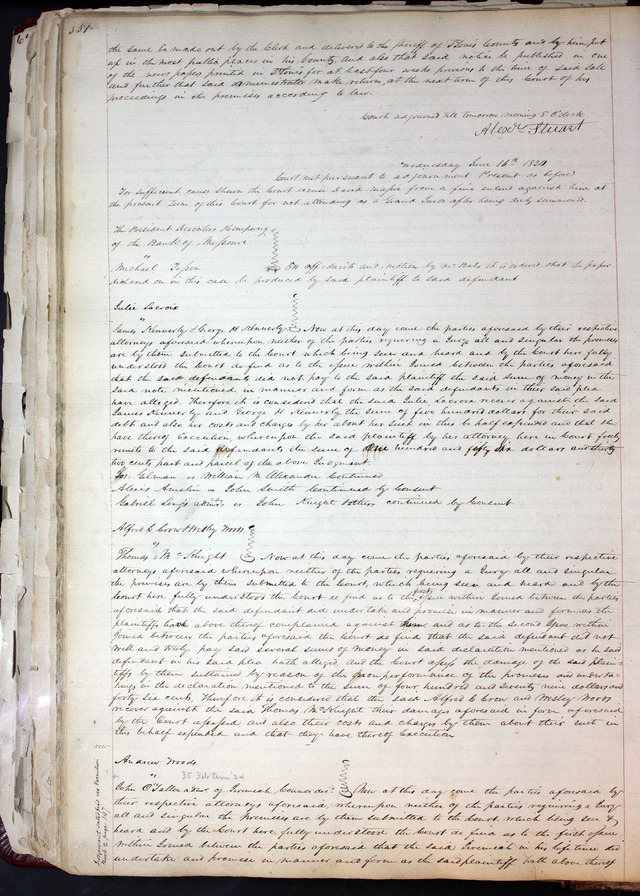 551
the same be made out by the Clerk and delivered to the sheriff of St Louis County and by him put
up in the most public places in his County, and also that said notice be published in one
of the news papers printed in St Louis for at least four weeks previous to the time of said Sale
and further that said administrator make return, at the next term of this Court of his
proceedings in the premises according to law.
Court adjourned till tomorrow morning 8 O'clock
Alexr Stuart
Wednesday June 16th 1824
Court met pursuant to adjournment Present as before
For sufficient cause shewn the Court David from a fine entered against him at
the present Term of this Court for not attending as a Grand Juror after being duly summoned.
The President Directors & Company
of the Bank of Missouri
"
Michael Tesson On affidavit and motion by Mr Bates it is ordered that the paper
declared on in this case be produced by said plaintiff to said defendant
Julie Lacroix
"
James Kennerly & George H Kennerly Now at this day come the parties aforesaid by their respective
attorneys aforesaid whereupon neither of the parties requiring a Jury all and singular the premises
are by them submitted to the Court which being seen and heard and by the Court here fully
understood the Court do find as to the issue within Joined between the parties aforesaid
that the said defendants did not pay to the said plaintiff the said sum of money in the
said note mentioned in manner and form as the said defendants in their said plea
have alleged. Therefore it is considered that the said Julie Lacroix recover against the said
James Kennerly and George H Kennerly the sum of five hundred dollars for their said
debt and also her costs and charges by her about her suit in this behalf expended and that she
have thereof Execution, whereupon the said plaintiff by her attorney here in Court freely
remits to the said defendants the sum of one hundred and fifty six dollars and thirty
two cents part and parcel of the above Judgment.
Gilman vs William M Alexander Continued
Alexis Amelin vs John Smith Continued by Consent
Gabriel Long's admr vs John Knight & others continued by Consent
Alfred C Crow & Wesley Moss
"
Thomas McKnight Now at this day come the parties aforesaid by their respective
attorneys aforesaid whereupon neither of the parties requiring a Jury all and singular
the premises are by them submitted to the Court, which being seen and heard and by the
Court here fully understood the Court do find as to the first issue within Joined between the parties
aforesaid that the said defendant did undertake and promise in manner and form as the
plaintiffs have above thereof complained against him and as to the second Issue within
Joined between the parties aforesaid the Court do find that the said defendant did not
well and truly pay said several sums of money in said declaration mentioned as he said
defendant in his said plea hath alleged, and the Court assess the damage of the said plain-
tiffs by them sustained by reason of the nonperformance of the promises and underta-
kings in the declaration mentioned to the sum of four hundred and seventy nine dollars and
forty six cents, Therefore it is considered that the said Alfred C Crow and Wesley Moss
recover against the said Thomas McKnight their damages aforesaid in form aforesaid
by the Court assessed and also their costs and charges by them about their suit in
this behalf expended and that they have thereof Execution
Andrew Woods
" 35 Feb term 24
John O'Fallon admr of Jeremiah Connor decd. Now at this day come the parties aforesaid by
their respective attorneys aforesaid, whereupon neither of the parties requiring a Jury
all and singular the Premises are by them submitted to the Court which being seen &
heard and by the Court here fully understood the Court do find as to the first issue
within Joined between the parties aforesaid that the said Jeremiah in his life time did
undertake and promise in manner and form as the said plaintiff hath above thereof